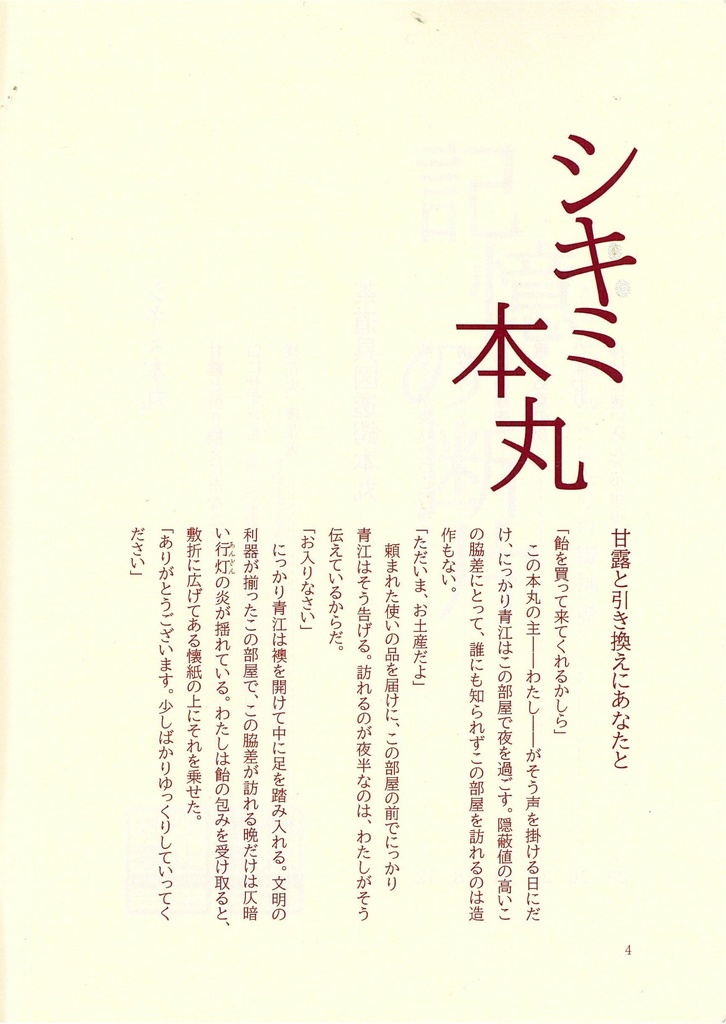 シキミ
本丸
甘露と引き換えにあなたと
「飴を買って来てくれるかしら」
　この本丸の主――わたし――がそう声を掛ける日にだ
け、にっかり青江はこの部屋で夜を過ごす。隠蔽値の高いこ
の脇差にとって、誰にも知られずこの部屋を訪れるのは造
作もない。
「ただいま、お土産だよ」
　頼まれた使いの品を届けに、この部屋の前でにっかり
青江はそう告げる。訪れるのが夜半なのは、わたしがそう
伝えているからだ。
「お入りなさい」
　にっかり青江は襖を開けて中に足を踏み入れる。文明の
利器が揃ったこの部屋で、この脇差が訪れる晩だけは仄暗
い行灯の炎が揺れている。わたしは飴の包みを受け取ると、
敷折に広げてある懐紙の上にそれを乗せた。
「ありがとうございます。少しばかりゆっくりしていってく
ださい」
4